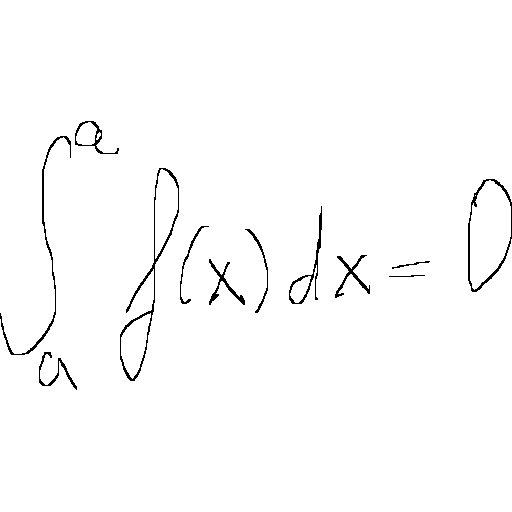 ∫_a^a f(x)dx = 0